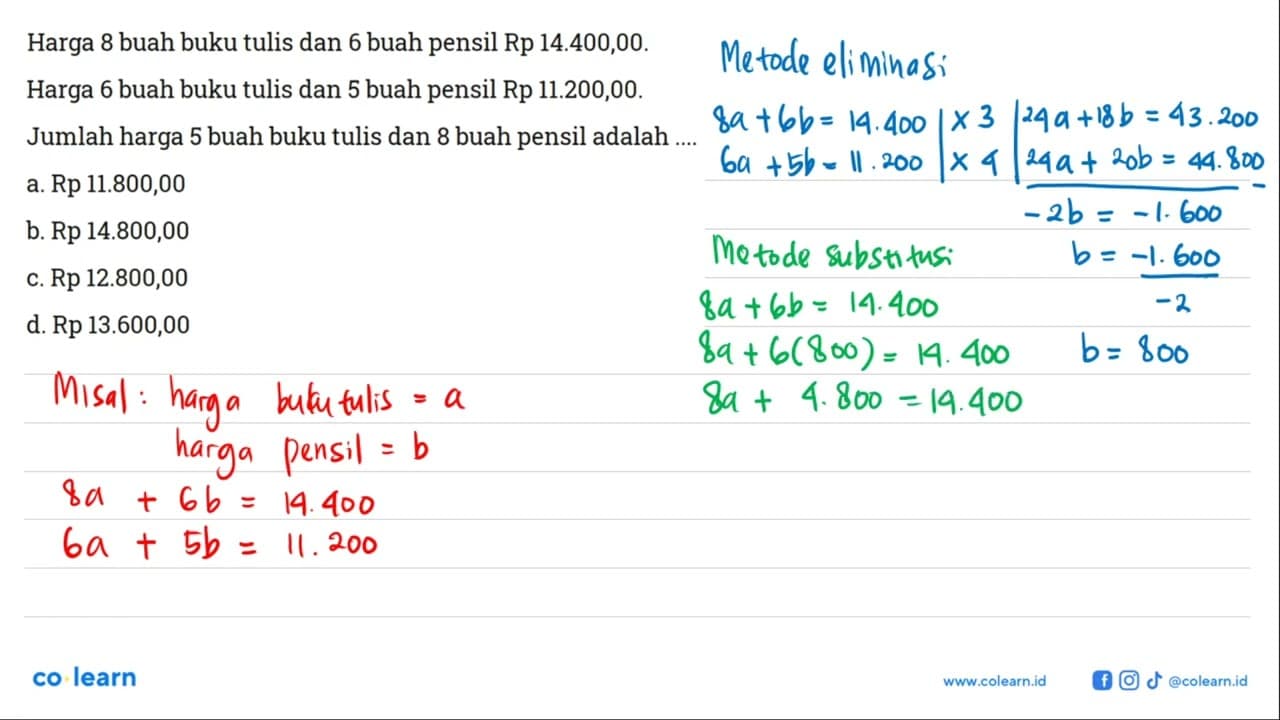 Harga 8 buah buku tulis dan 6 buah pensil Rp 14.400,00.
Harga 6 buah buku tulis dan 5 buah pensil Rp 11.200,00.
Jumlah harga 5 buah buku tulis dan 8 buah pensil adalah ....
a. Rp 11.800,00
b. Rp 14.800,00
c. Rp 12.800,00
d. Rp 13.600,00
Misal : harga buku tulis = a
harga pensil = b
8a + 6b = 14.400
6a + 5b = 11.200
Metode eliminasi
8a + 6b = 14.400 | x 3 | 24a + 18b = 43.200
6a + 5b = 11.200 | x 4 | 24a + 20b = 44.800 -
-2b = -1.600
b = -1.600
-2
b = 800
Metode substitusi
8a + 6b = 14.400
8a + 6(800) = 14.400
8a + 4.800 = 14.400
co learn
www.colearn.id
@colearn.id